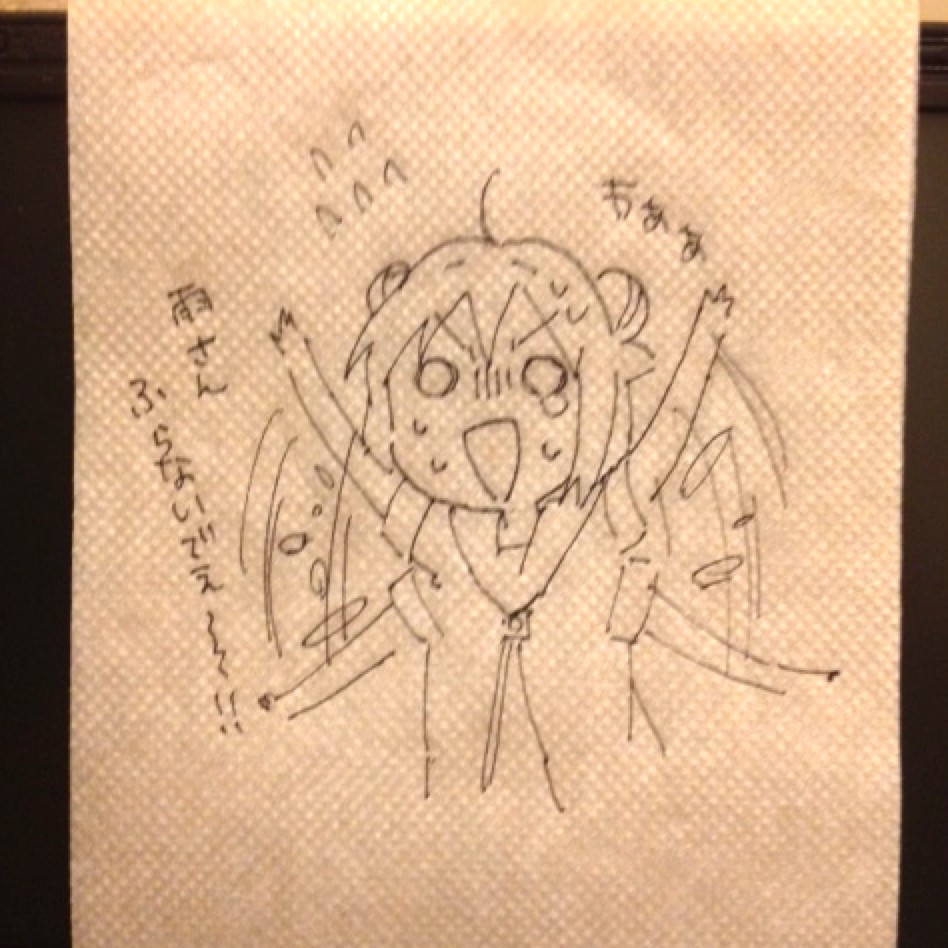 わぁぁ
雨さん
ふらないでぇ〜〜!!